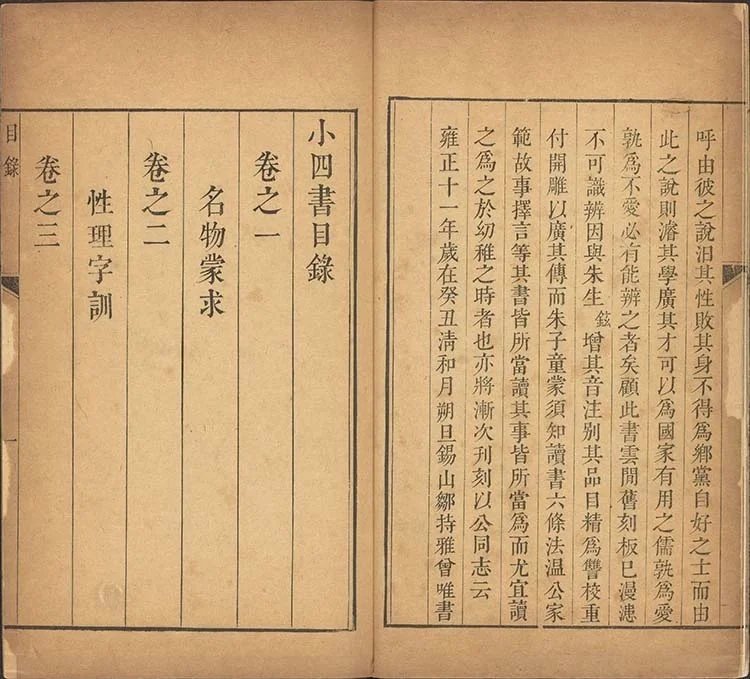 呼由彼之說汨其性敗其身不得爲鄉黨自好之士而由
此之說則濬其學廣其才可以爲國家有用之儒孰爲愛
孰爲不愛必有能辨之者矣顧此書雲閒舊刻板已漫漶
不可識辨因與朱生鉉增其音注别其品目精爲讐校重
付開雕以廣其傳而朱子童蒙須知讀書六條法温公家
範故事擇言等其書皆所當讀其事皆所當爲而尤宜讀
之爲之於幼稚之時者也亦將漸次刋刻以公同志云
雍正十一年歲在癸丑淸和月朔旦錫山鄒持雅曾唯書
小四書目錄
卷之一
名物蒙求
卷之二
性理字訓
卷之三
目錄
一